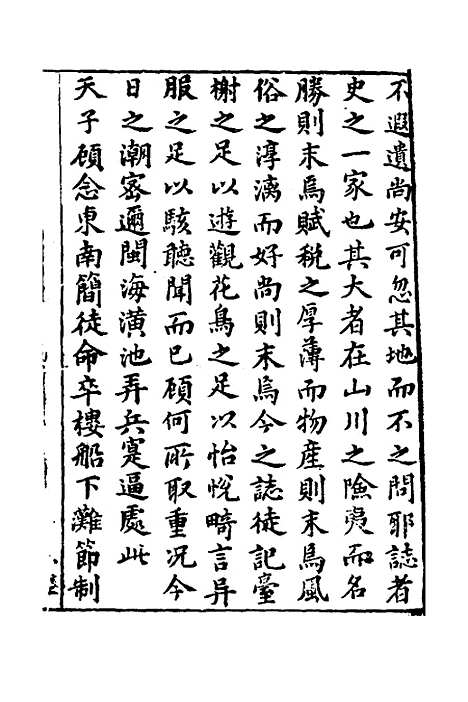 不遐遺尚安可忽其地而不之問耶誌者
史之一家也其大者在山川之險夷而名
勝則末焉賦稅之厚薄而物產則末焉風
俗之淳漓而好尚則末焉今之誌徒記臺
榭之足以遊觀花鳥之足以怡悅畸言异
服之足以駭聽聞而已顧何所取重况今
日之潮密邇閩海潢池弄兵寔逼處此
天子顧念東南簡徒命卒樓船下灘節制